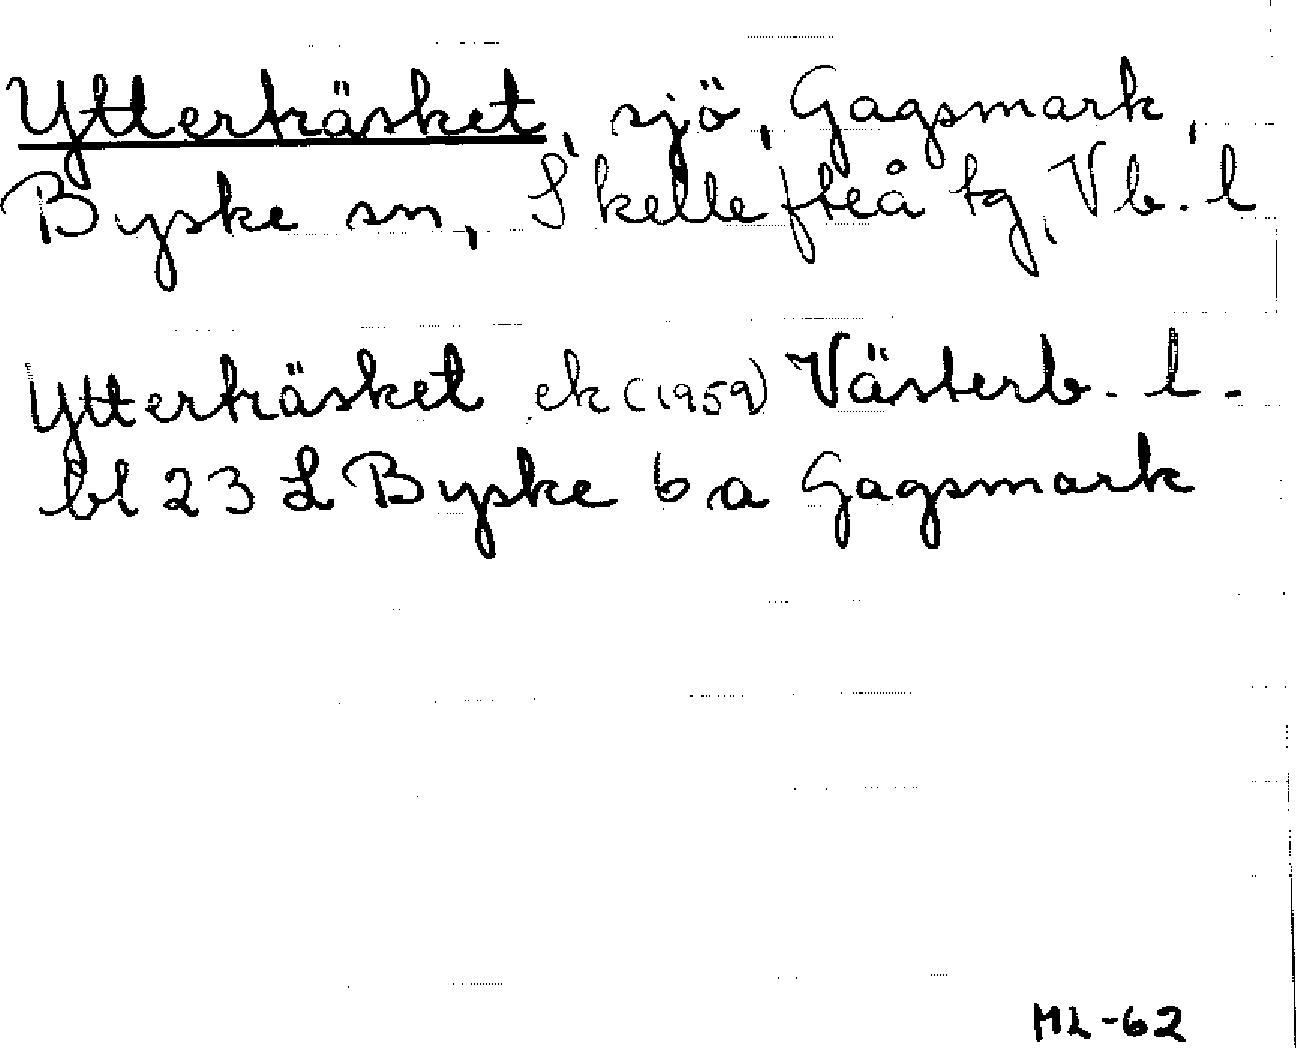 Ytterträsket, sjö, Gagsmark,
Byske sn, Skellefteå tg, Vb. l
Ytterträsket ek (1959) Västerb. l.
bl 23 L Byske 6 a Gagsmark
ML-62